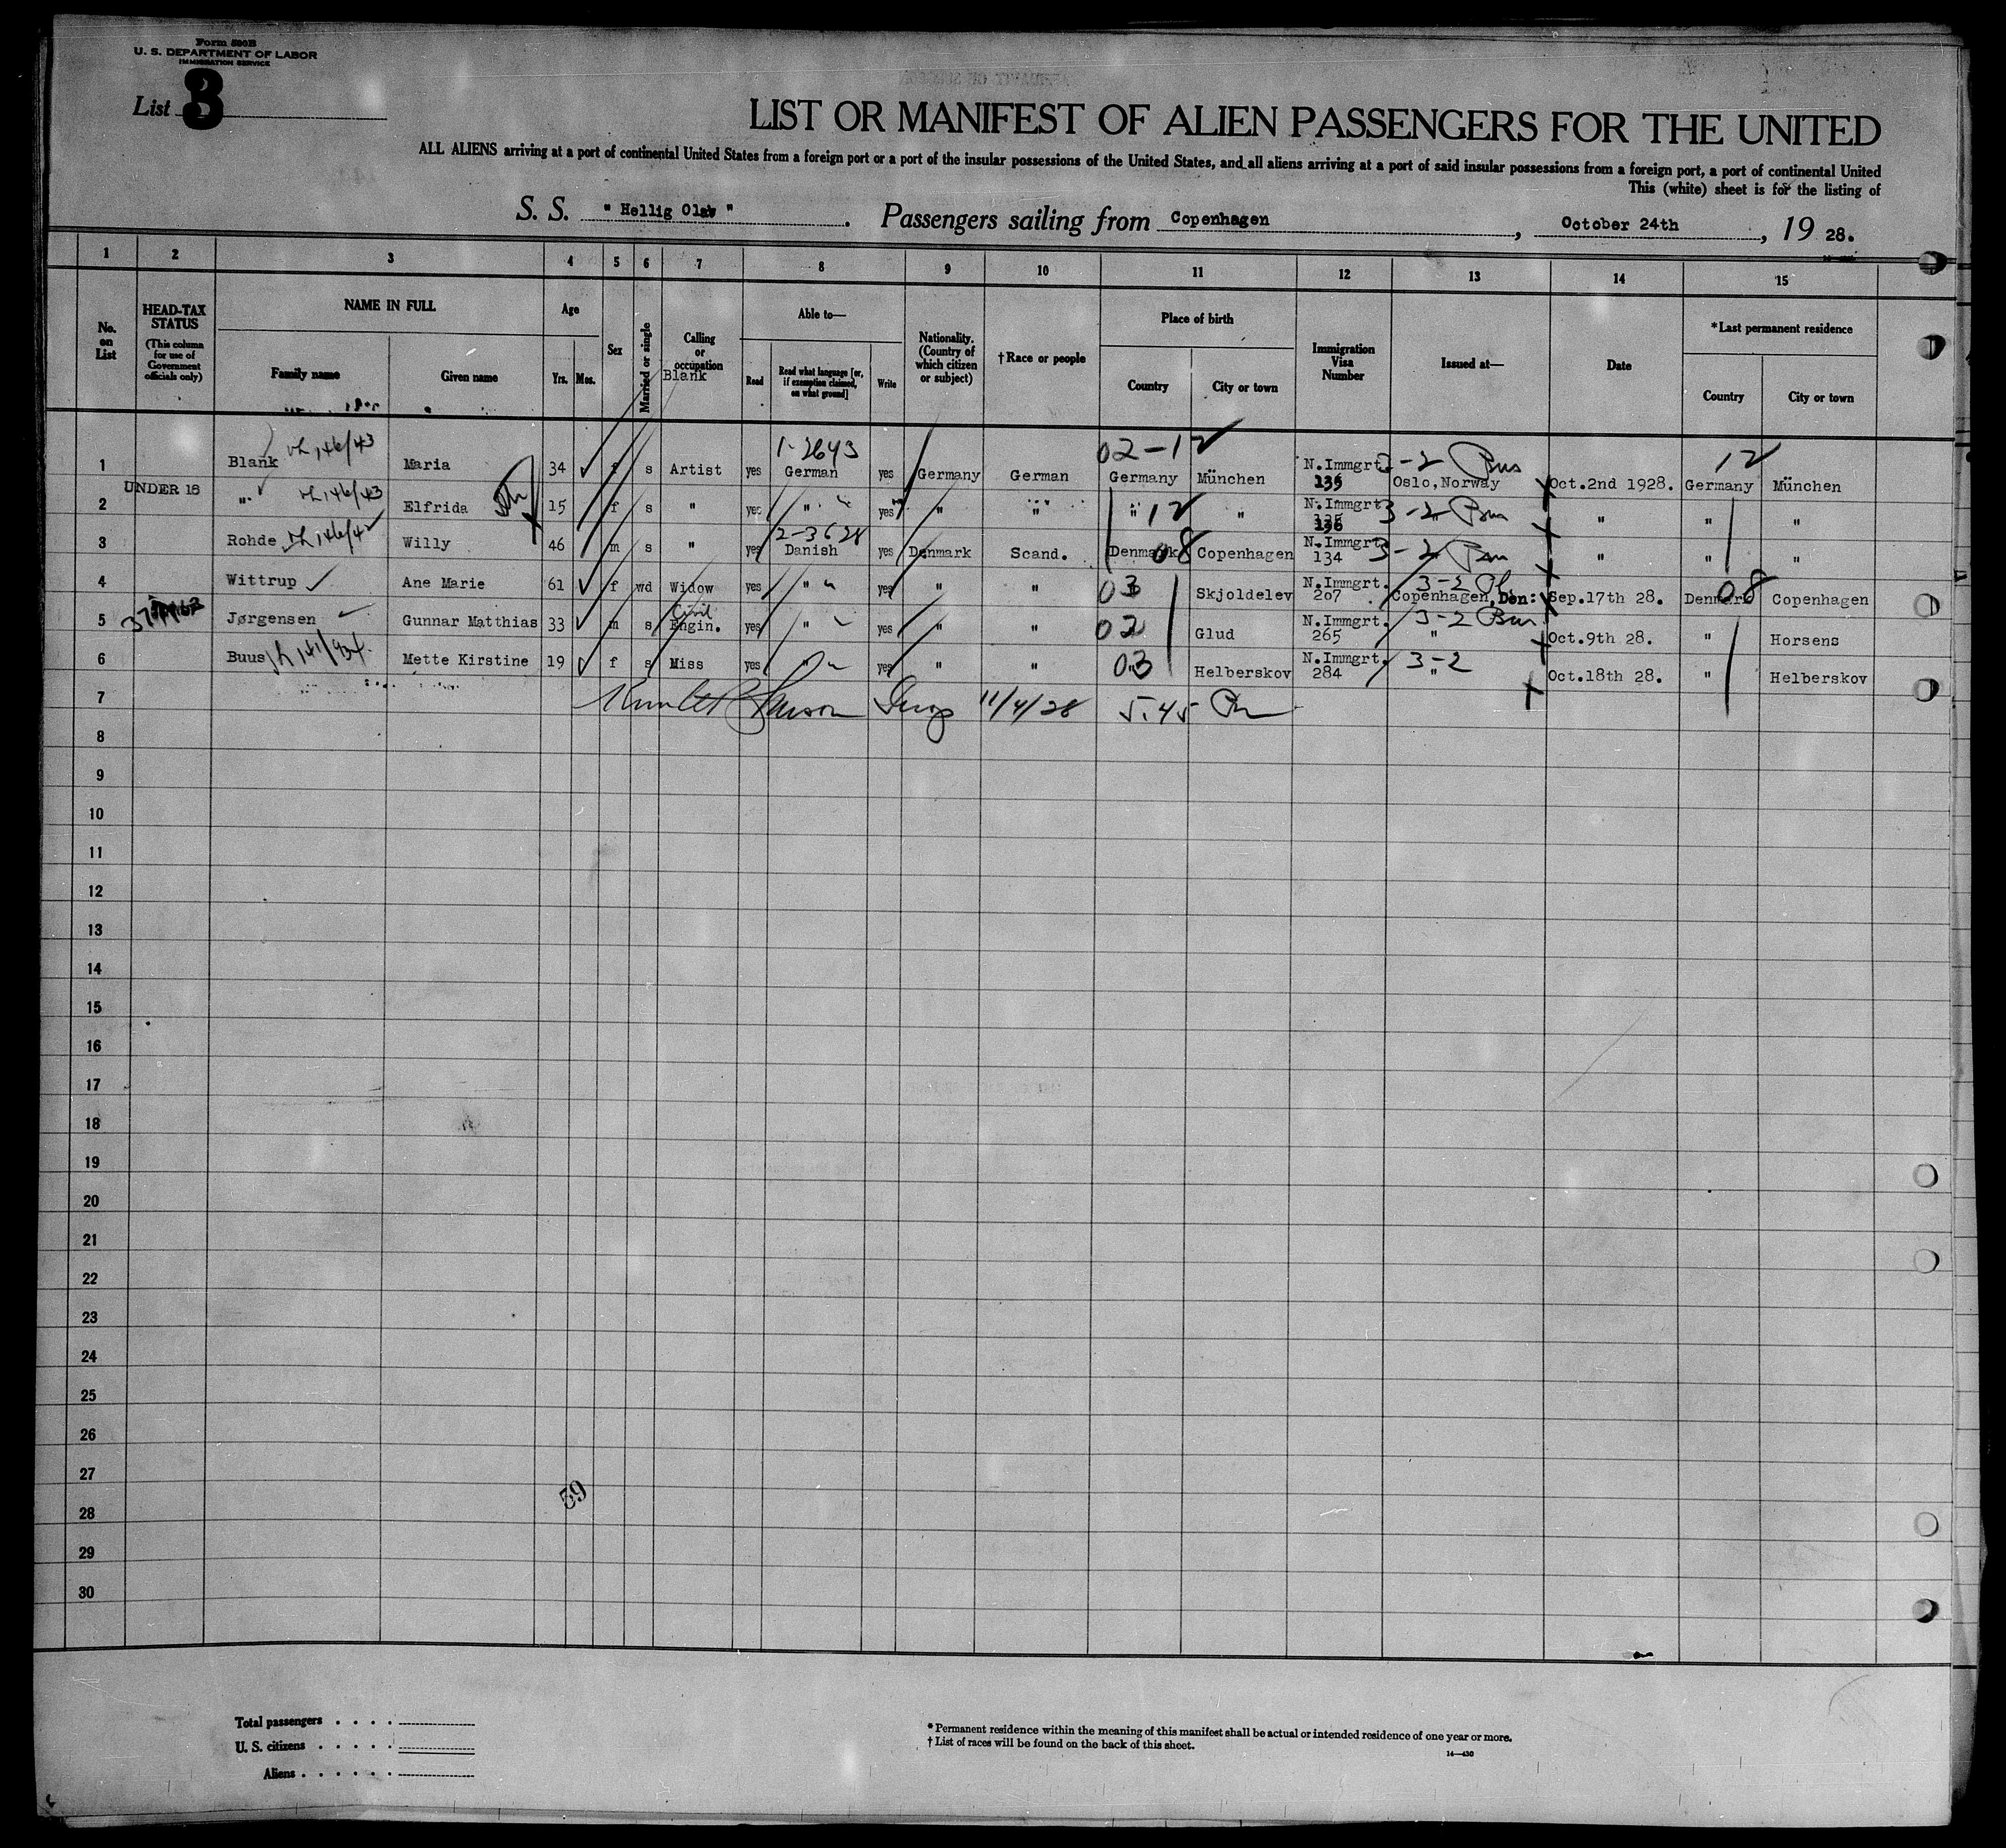 Form 500B
U. S. DEPARTMENT OF LABOR
IMMIGRATION SERVICE
List 3
LIST OR MANIFEST OF ALIEN PASSENGERS FOR THE UNITED
ALL ALIENS arriving at a port of continental United States from a foreign port or a port of the insular possessions of the United States, and all aliens arriving at a port of said insular possessions from a foreign port, a port of continental United
This (white) sheet is for the listing of
S. S. "Hellig Olav". Passengers sailing from Copenhagen, October 24th, 19 28.
1 2 3 4 5 6 7 8 9 10 11 12 13 14 15
No. on List
HEAD-TAX STATUS
(This column for use of Government officials only)
NAME IN FULL
Family name Given name
Age
Yrs. Mos.
Sex
Married or single
Calling or occupation
Blank
Able to—
Read
Read what language [or, if exemption claimed, on what ground]
Write
Nationality. (Country of which citizen or subject)
†Race or people
Place of birth
Country City or town
Immigration Visa Number
Issued at—
Date
*Last permanent residence
Country City or town
1-2643 02-12 12
1 Blank Maria 34 f s Artist yes German yes Germany German Germany München N.Immgrt. 135 3-2 Oslo, Norway Oct.2nd 1928. Germany München
UNDER 16
2 " Elfrida 15 f s " yes " yes " " " 12 " N.Immgrt. 136 3-2 " " " "
2-3628
3 Rohde Willy 46 m s " yes Danish yes Denmark Scand. Denmark 08 Copenhagen N.Immgrt. 134 3-2 " " " "
4 Wittrup Ane Marie 61 f wd Widow yes " yes " " 03 Skjoldelev N.Immgrt. 207 3-2 Copenhagen, Den: Sep.17th 28. Denmark 08 Copenhagen
5 Jørgensen Gunnar Matthias 33 m s Civil Engin. yes " yes " " 02 Glud N.Immgrt. 265 3-2 " Oct.9th 28. " Horsens
6 Buus Mette Kirstine 19 f s Miss yes " yes " " 03 Helberskov N.Immgrt. 284 3-2 " Oct.18th 28. " Helberskov
7 11/4/28 5.45 Pm
8
9
10
11
12
13
14
15
16
17
18
19
20
21
22
23
24
25
26
27
28
39
29
30
Total passengers
U. S. citizens
Aliens
* Permanent residence within the meaning of this manifest shall be actual or intended residence of one year or more.
† List of races will be found on the back of this sheet.
14—430